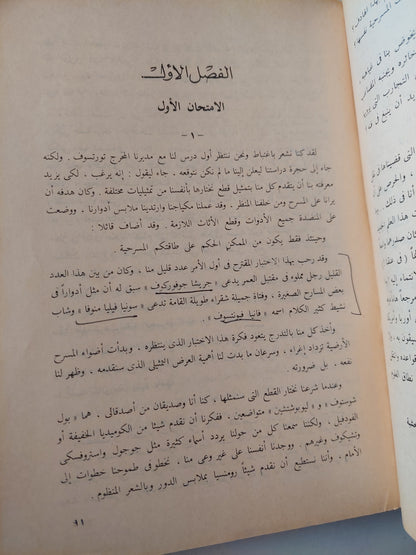 الفصل الأول
الامتحان الأول
- ١ -
لقد كنا نشعر باغتباط ونحن ننتظر أول درس لنا مع مديرنا المخرج تورتسوف . ولكنه
جاء إلى حجرة دراستنا ليعلن إلينا ما لم نكن نتوقعه . جاء ليقول : إنه يرغب ، لكى يزيد
معرفته بنا أن يتقدم كل منا بتمثيل قطع نختارها بأنفسنا من تمثيليات مختلفة . وكان هدفه أن
يرانا على المسرح ومن خلفنا المنظر . وقد عملنا مكياجنا وارتدينا ملابس أدوارنا . ووضعت
على المنضدة جميع الأدوات وقطع الأثاث اللازمة . وقد أضاف قائلا :
وحينئذ فقط يكون من الممكن الحكم على طاقتكم المسرحية .
وقد رحب بهذا الاختبار المقترح فى أول الأمر عدد قليل منا . وكان من بين هذا العدد
القليل رجل مملوء فى مقتبل العمر يدعى « جريشا جوفوركوف » سبق له أن مثل أدواراً فى
بعض المسارح الصغيرة ، وفتاة جميلة شقراء طويلة القامة تدعى « سونيا فيليا منوفا » وشاب
نشيط كثير الكلام اسمه « فانيا فيونتسوف » .
وأخذ كل منا بالتدرج يتعود فكرة هذا الاختبار الذى ينتظره . وبدأت أضواء المسرح
الأرضية تزداد إغراء . وسرعان ما بدت لنا أهمية العرض التمثيلى الذى سنقدمه . وظهر لنا
نفعه . بل ضرورته .
وعندما شرعنا نختار القطع التى سنمثلها ، كنا أنا وصديقان من أصدقائى . هما « بول
شوستوف » و « ليوبوشتشين » متواضعين . ففكرنا أن نقدم شيئا من الكوميديا الخفيفة أو
الفودفيل . ولكننا سمعنا كل من حولنا يردد أسماء كثيرة مثل جوجول واستروفسكى
وتشيكوف وغيرهم . ووجدنا أنفسنا على غير وعى منا ، نخطو فى طموحنا خطوات إلى
الأمام . وأننا نستطيع أن نقدم شيئاً رومنسيا بملابس الدور وبالشعر المنظوم .
١١